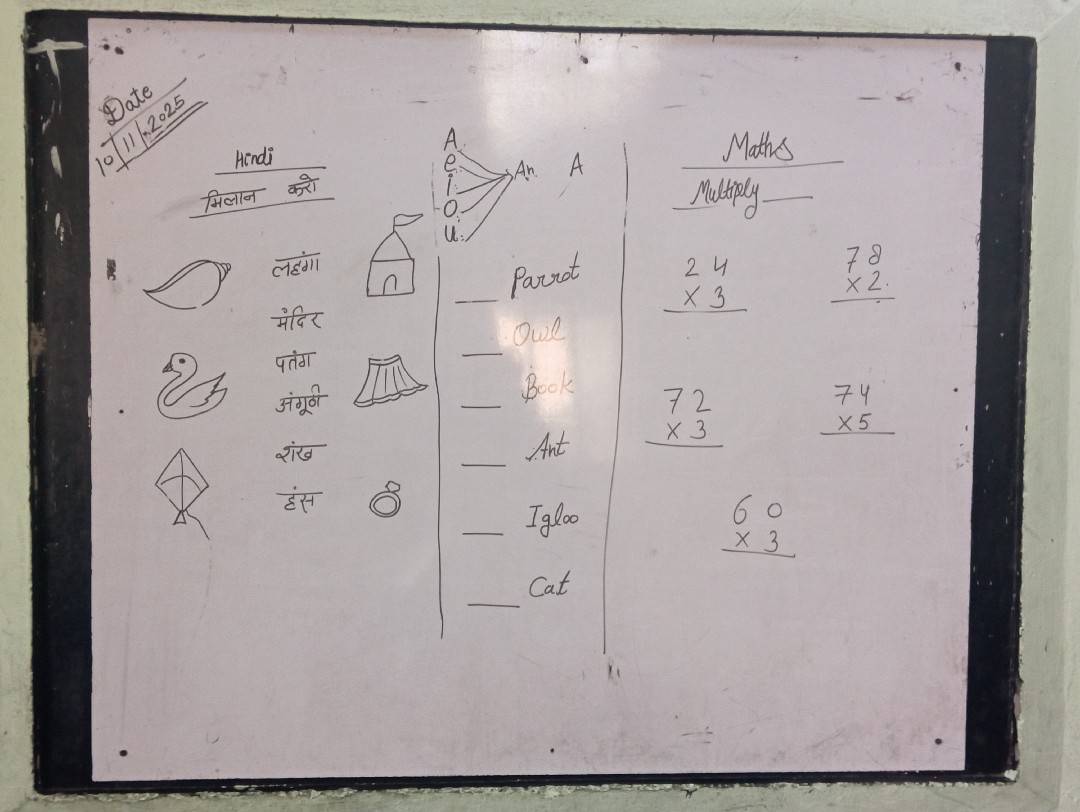 Date
10/11/2025
Hindi
मिलान करो
लहंगा
मंदिर
पतंग
अंगूठी
शंख
हंस
A
e
i
o
u
An A
__ Parrot
__ Owl
__ Book
__ Ant
__ Igloo
__ Cat
Maths
Multiply
24
×3
78
×2
72
×3
74
×5
60
×3